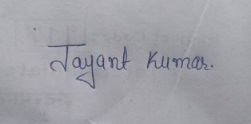 Jayant Kumar.